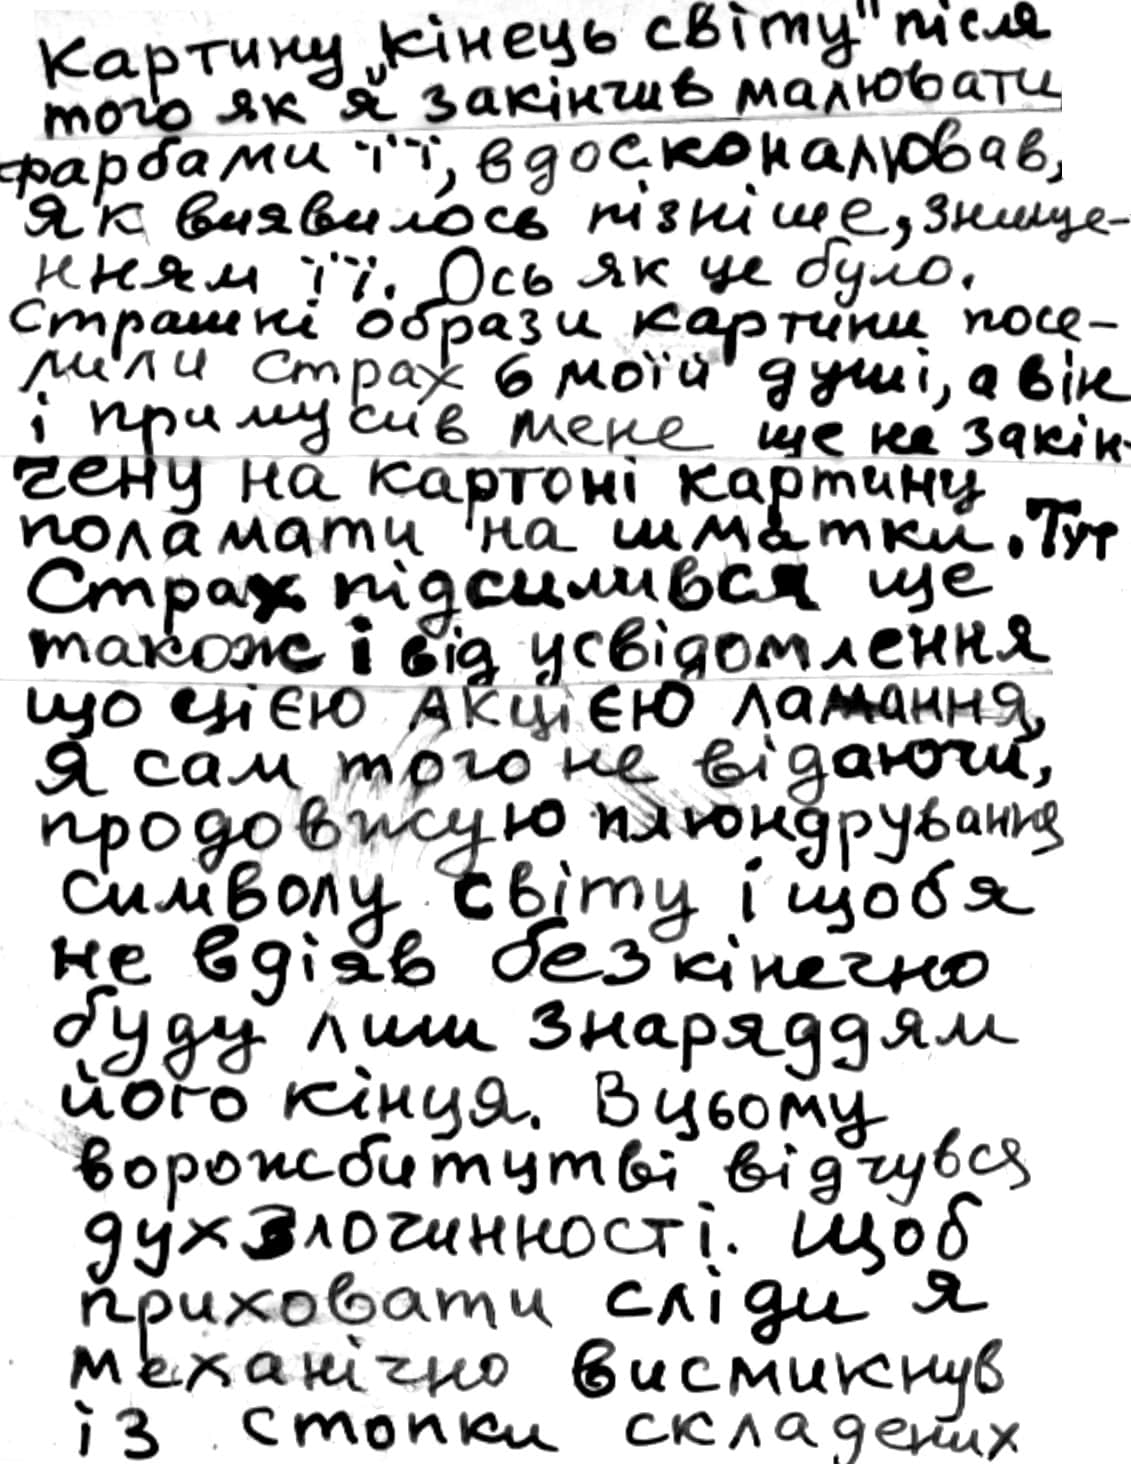 Картину „кінець світу" після
того як я закінчив малювати
фарбами її, вдосконалював,
як виявилось пізніше, знище-
нням її. Ось як це було.
Страшні образи картини посе-
лили страх в моїй душі, а він
і примусив мене ще не закін-
чену на картоні картину
поламати на шматки. Тут
Страх підсилився ще
також і від усвідомлення
що цією акцією ламання,
я сам того не відаючи,
продовжую плюндрування
символу світу і щоб я
не вдіяв безкінечно
буду лиш знаряддям
його кінця. В цьому
ворожбитутві відчувся
дух злочинності. Щоб
приховати сліди я
механічно висмикнув
із стопки складених